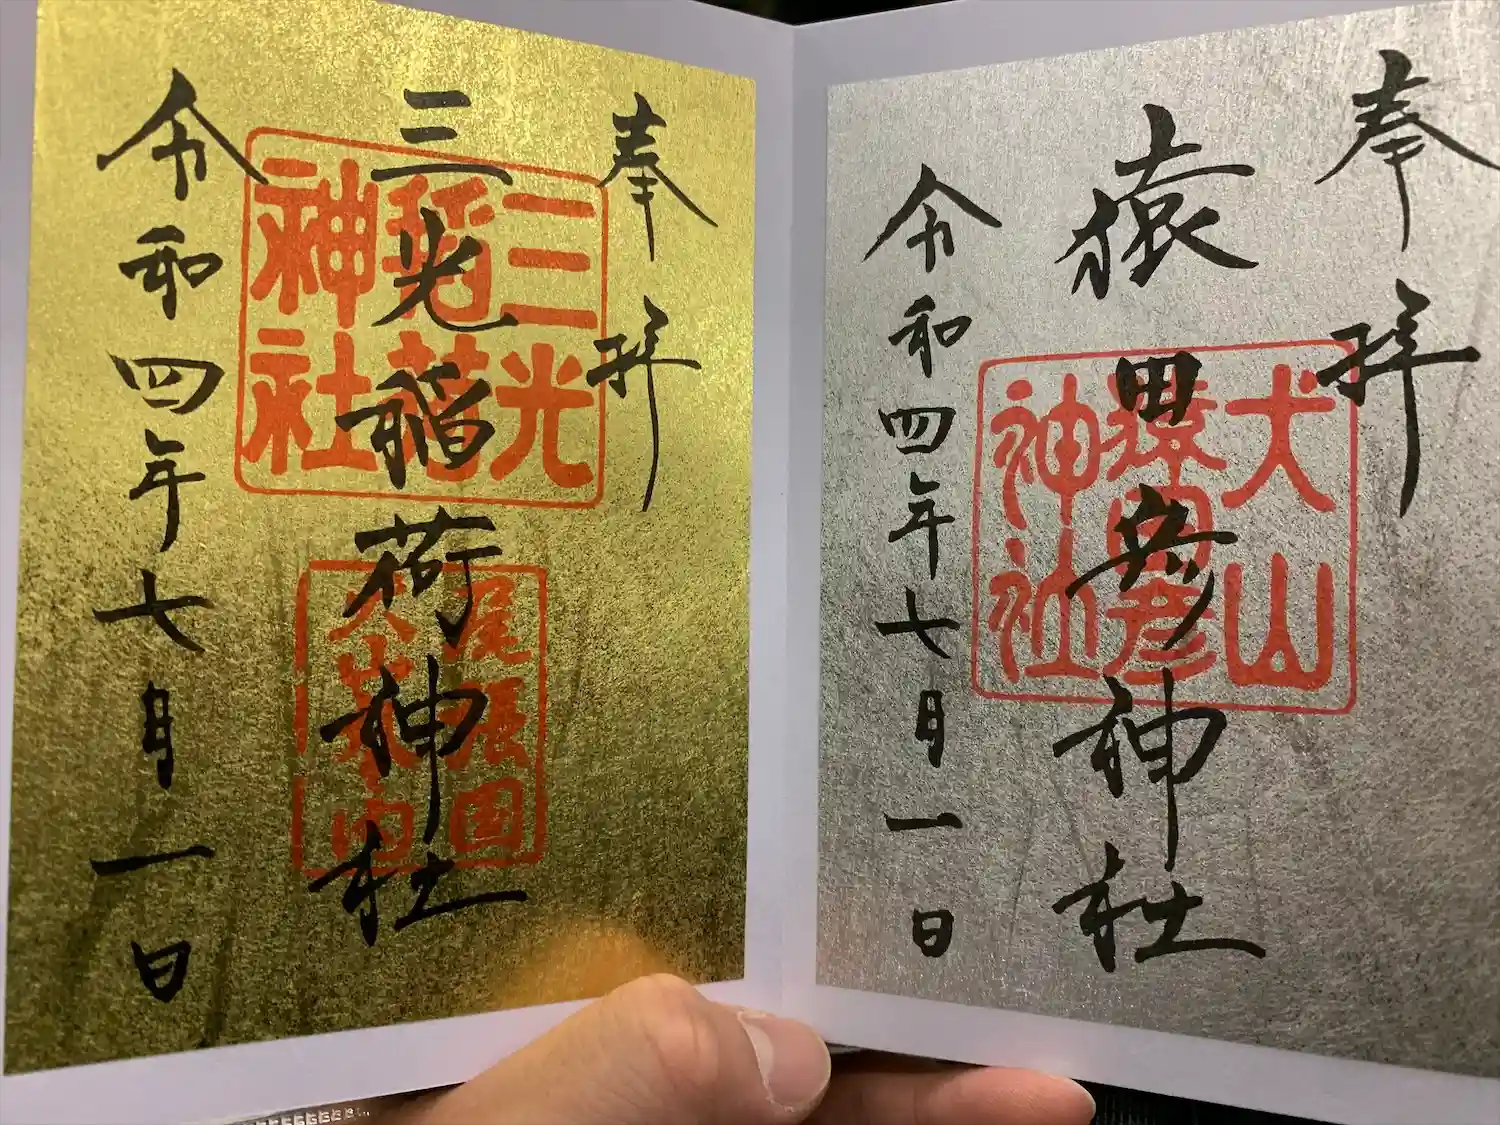 奉拝
猿田彦神社
犬山
猿田彦
神社
令和四年七月一日
奉拝
三光稲荷神社
三光
稲荷
神社
尾張国
犬山城内
令和四年七月一日